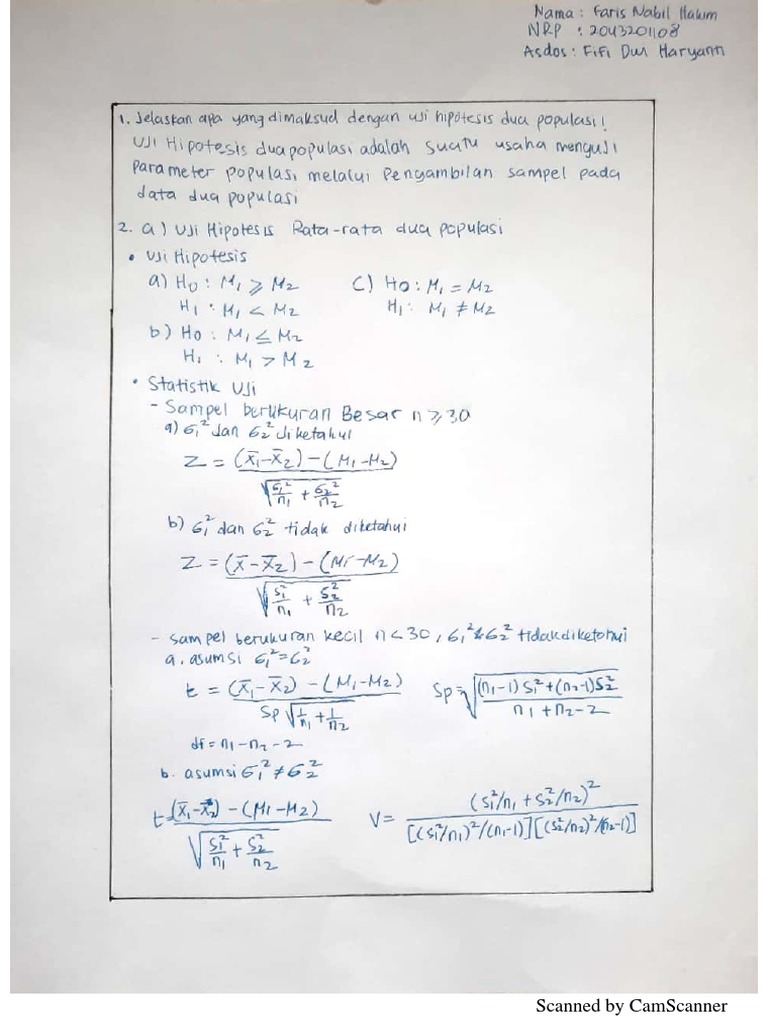 Nama : Faris Nabil Hakim
NRP : 2043201108
Asdos : Fifi Dwi Haryanti
1. Jelaskan apa yang dimaksud dengan uji hipotesis dua populasi!
Uji Hipotesis dua populasi adalah suatu usaha menguji
Parameter populasi melalui Pengambilan sampel pada
data dua populasi
2. a) Uji Hipotesis Rata-rata dua populasi
• Uji Hipotesis
a) H0 : M1 ⩾ M2 C) H0 : M1 = M2
H1 : M1 < M2 H1 : M1 ≠ M2
b) H0 : M1 ≤ M2
H1 : M1 > M2
• Statistik Uji
- Sampel berukuran Besar n ⩾ 30
a) σ1² dan σ2² diketahui
Z = (x̄1 - x̄2) - (M1 - M2) / √(σ1²/n1 + σ2²/n2)
b) σ1² dan σ2² tidak diketahui
Z = (x̄ - x̄2) - (M1 - M2) / √(S1²/n1 + S2²/n2)
- Sampel berukuran kecil n < 30, σ1² & σ2² tidak diketahui
a. asumsi σ1² = σ2²
t = (x̄1 - x̄2) - (M1 - M2) / Sp √(1/n1 + 1/n2) Sp = √((n1-1) S1² + (n2-1) S2² / n1 + n2 - 2)
df = n1 - n2 - 2
b. asumsi σ1² ≠ σ2²
t = (x̄1 - x̄2) - (M1 - M2) / √(S1²/n1 + S2²/n2) V = (S1²/n1 + S2²/n2)² / [(S1²/n1)²/(n1-1)][(S2²/n2)²/(n2-1)]
Scanned by CamScanner